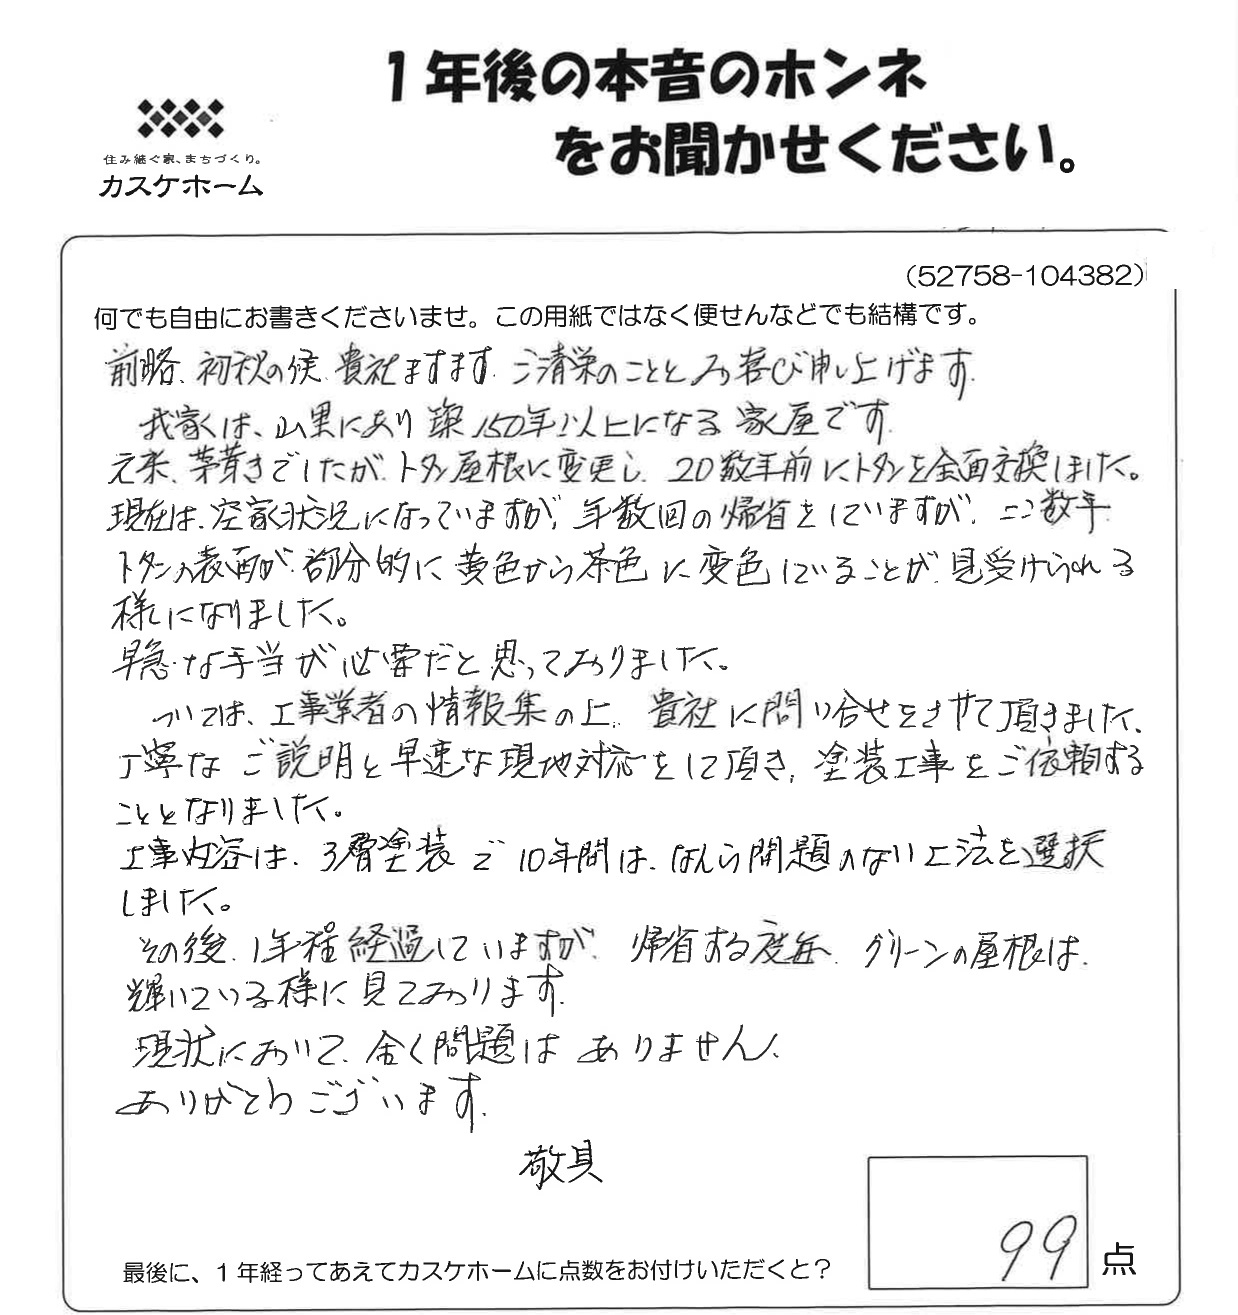 1年後の本音のホンネ
をお聞かせください。
住み継ぐ家、まちづくり。
カスケホーム
(52758-104382)
何でも自由にお書きくださいませ。この用紙ではなく便せんなどでも結構です。
前略、初秋の候、貴社ますます、ご清栄のこととお喜び申し上げます。
我家は、山里にあり築150年以上になる家屋です。
元来、茅葺きでしたが、トタン屋根に変更し、20数年前にトタンを全面交換しました。
現在は、空家状況になっていますが、年数回の帰省をしていますが、ここ数年
トタンの表面が、部分的に黄色から茶色に変色していることが、見受けられる
様になりました。
早急な手当が必要だと思っておりました。
ついては、工事業者の情報集の上、貴社に問い合せをさせて頂きました、
丁寧なご説明と早速な現地対応をして頂き、塗装工事をご依頼する
こととなりました。
工事内容は、3層塗装で10年間は、なんら問題のない工法を選択
しました。
その後、1年程経過していますが、帰省する度毎、グリーンの屋根は、
輝いている様に見ております。
現状において、全く問題はありません、
ありがとうございます。
敬具
最後に、1年経ってあえてカスケホームに点数をお付けいただくと？
99点